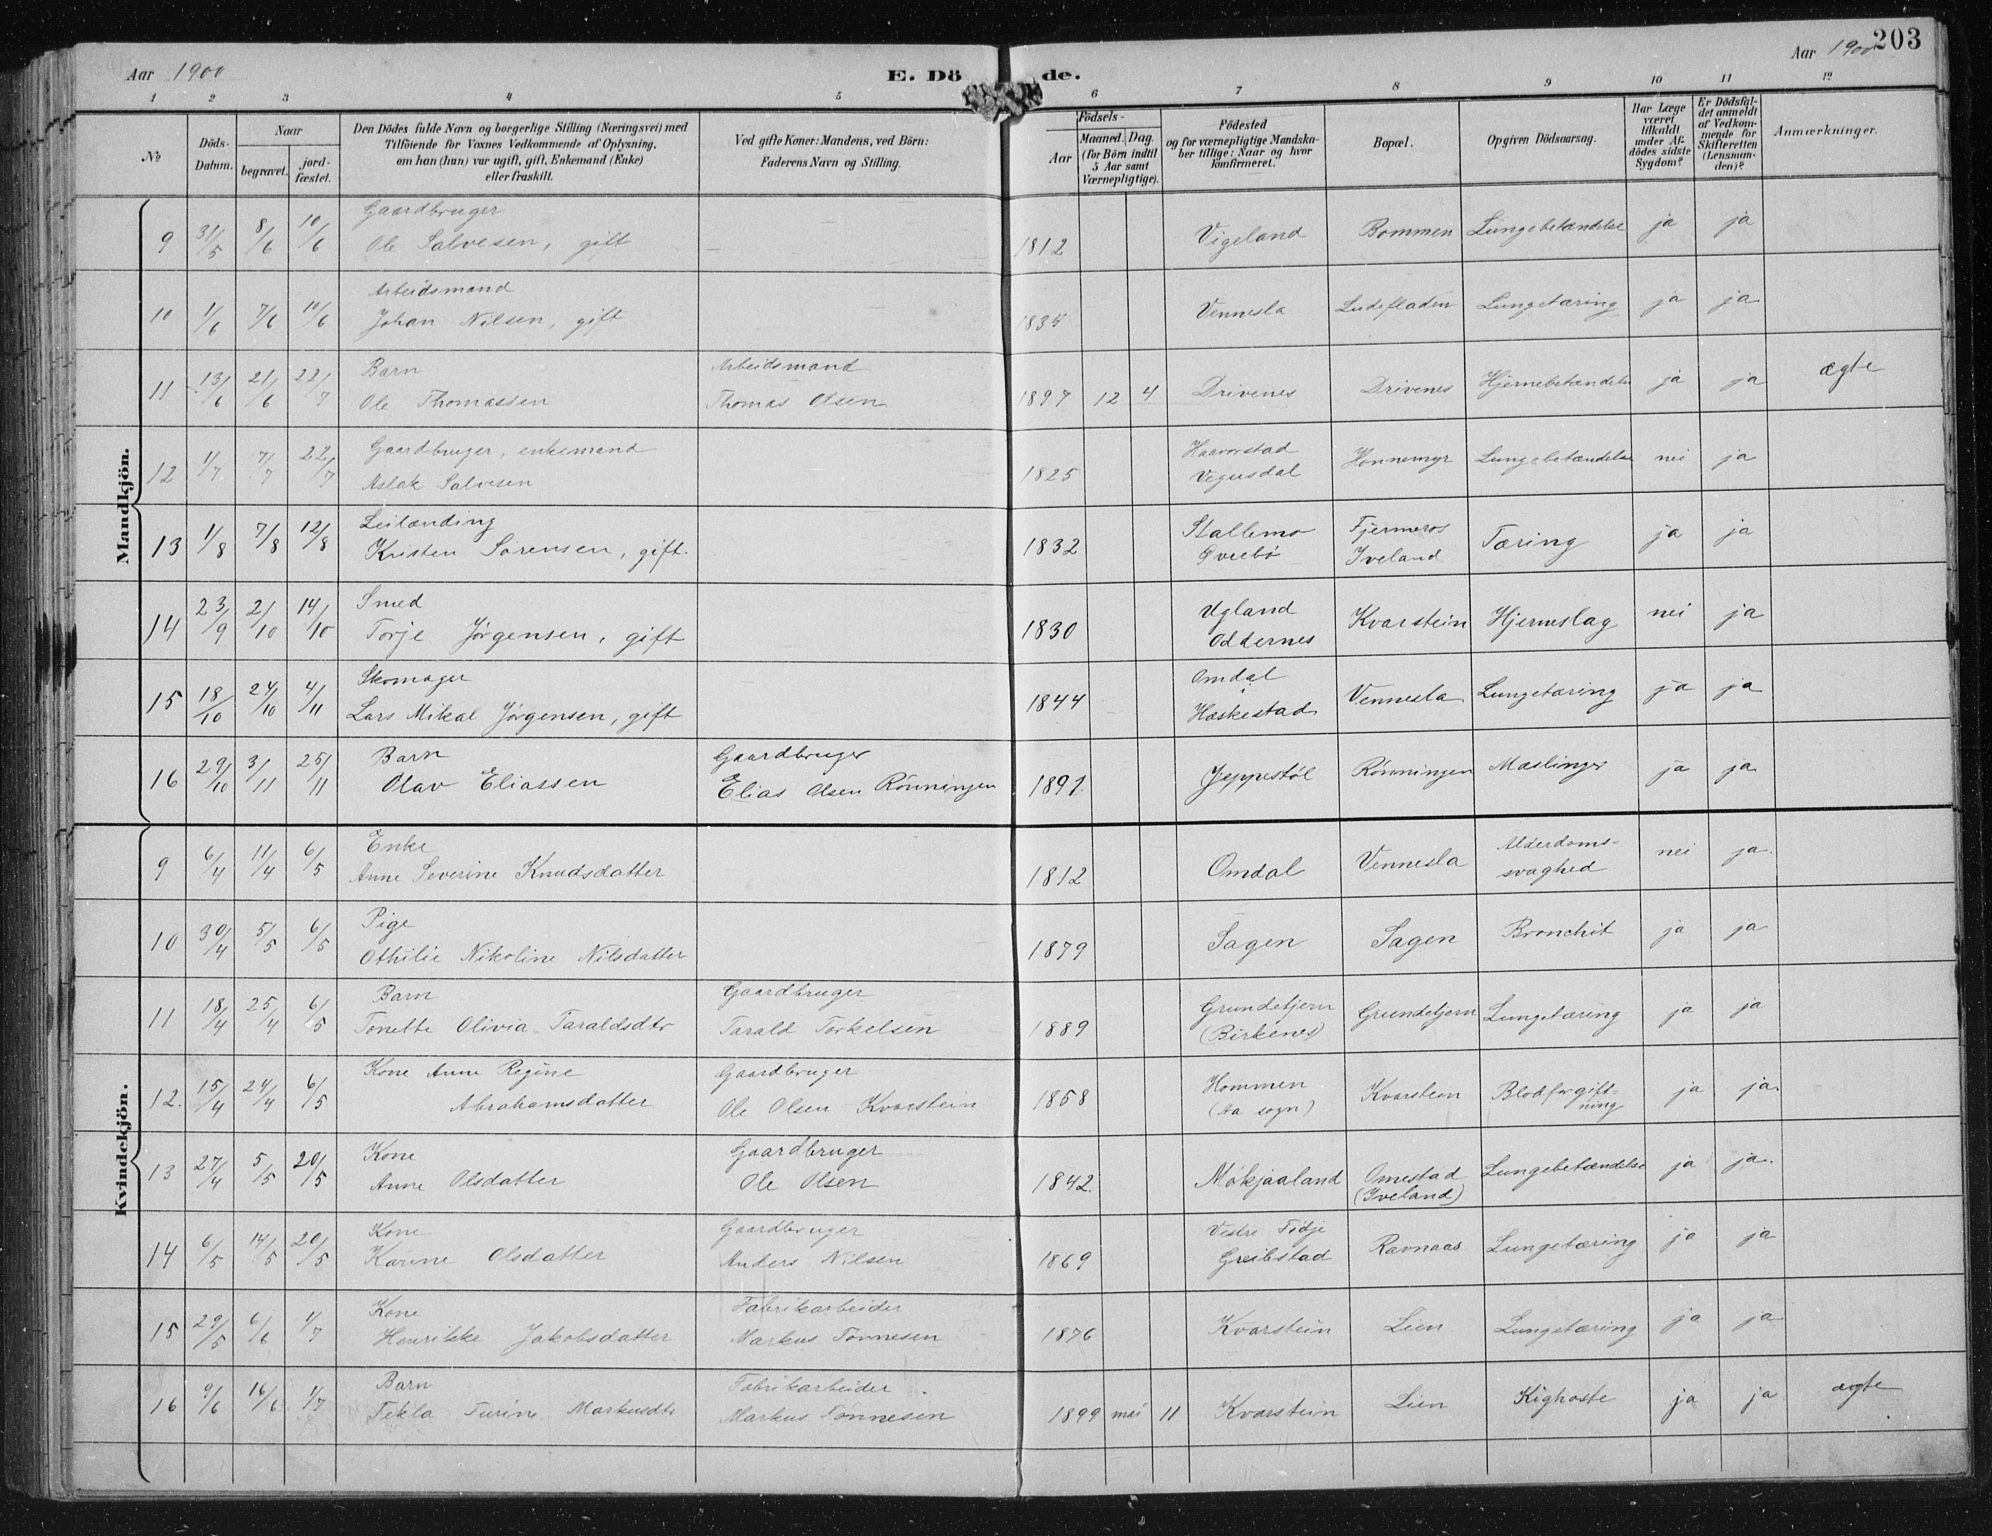 Aar 1900
E. Dö de.
Aar 1900 203
1 2 3 4 5 6 7 8 9 10 11 12
No
Döds-Datum.
Naar
begravet.
jord-fæstet.
Den Dödes fulde Navn og borgerlige Stilling (Næringsvei) med
Tilföiende for Voxnes Vedkommende af Oplysning,
om han (hun) var ugift, gift, Enkemand (Enke)
eller fraskilt.
Ved gifte Koner: Mandens, ved Börn:
Faderens Navn og Stilling.
Födsels-
Aar
Maaned. Dag.
(for Börn indtil
5 Aar samt
Værnepligtige).
Födested
og for værnepligtige Mandska-
ber tillige: Naar og hvor
konfirmeret.
Bopæl.
Opgiven Dödsaarsag.
Har Læge
været
tilkaldt
under Af-
dödes sidste
Sygdom?
Er Dödsfal-
det anmeldt
af Vedkom-
mende for
Skifteretten
(Lensman-
den)?
Anmærkninger.
Mandkjön.
9 31/5 8/6 10/6 Gaardbruger
Ole Salvesen, gift 1812 Vigeland Bommen Lungebetændelse ja ja
10 1/6 7/6 10/6 Arbeidsmand
Johan Nilsen, gift 1834 Vennesla Ludefladen Lungetæring ja ja
11 13/6 21/6 22/7 Barn Arbeidsmand
Ole Thomassen Thomas Olsen 1897 12 4 Drivenes Drivenes Hjernebetændelse ja ja ægte
12 1/7 7/7 22/7 Gaardbruger, enkemand
Aslak Salvesen 1825 Haavorstad
Vegusdal Honnemyr Lungebetændelse nei ja
13 1/8 7/8 12/8 Leilænding
Kristen Sørensen, gift. 1832 Stallemo
Øvrebö Fjermeros
Iveland Tæring ja ja
14 23/9 2/10 14/10 Smed
Torje Jørgensen, gift 1830 Ugland
Oddernes Kvarstein Hjerneslag nei ja
15 18/10 24/10 4/11 Skomager
Lars Mikal Jørgensen, gift 1844 Omdal
i
Hæskestad Vennesla Lungetæring ja ja
16 29/10 3/11 25/11 Barn Gaardbruger
Olav Eliassen Elias Olsen Rönningen 1891 Jeppestöl Rönningen Mæslinger ja ja
Kvindekjön.
9 6/4 11/4 6/5 Enke
Anne Severine Knudsdatter 1812 Omdal Vennesla Alderdoms-
svaghed nei ja.
10 30/4 5/5 6/5 Pige
Othilie Nikoline Nilsdatter 1879 Sagen Sagen Bronchit ja ja
11 18/4 25/4 6/5 Barn Gaardbruger
Tonette Olivia Taraldsdtr Tarald Torkelsen 1889 Grundetjern
(Birkenes) Grundetjern Lungetæring ja ja
12. 15/4 24/4 6/5 Kone Anne Regine Gaardbruger
Abrahamsdatter Ole Olsen Kvarstein 1858 Hommen
(Aa sogn) Kvarstein Blodforgift-
ning ja ja.
13 27/4 5/5 20/5 Kone Gaardbruger
Anne Olsdatter Ole Olsen 1842. Mökjaaland Omestad
(Iveland) Lungebetændelse ja ja.
14 6/5 14/5 20/5 Kone Gaardbruger
Karine Olsdatter Anders Nilsen 1869 Vestre Tidje
Greibstad Ravnaas Lungetæring ja ja
15 29/5 6/6 1/7 Kone Fabrikarbeider
Henrikke Jakobsdatter Markus Tönnesen 1876 Kvarstein Lien Lungetæring ja ja
16 9/6 16/6 1/7 Barn Fabrikarbeider
Tekla Turine Markusdtr Markus Tønnesen 1899 mai 11 Kvarstein Lien Kighoste ja ja ægte